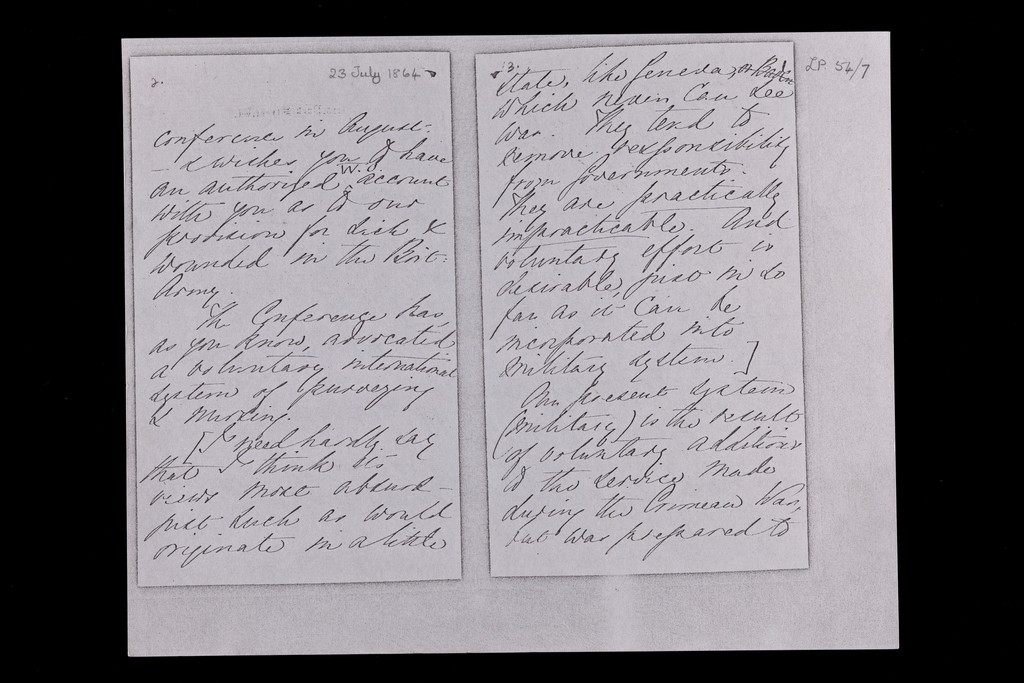 2.
23 July 1864
conference in August -
- & wishes you to have
an authorised W.O. account
with you as to our
provision for Sick &
Wounded in the Brit:
Army.
The Conference has,
as you know, advocated
a voluntary international
system of Purveying
& Nursing.
[I need hardly say
that I think its
views most absurd -
just such as would
originate in a little
3.
LP 54/7
state, like Geneva, or Baden
which never can see
war. They tend to
remove responsibility
from Governments.
They are practically
impracticable. And
voluntary effort is
desirable, just in so
far as it can be
incorporated into
military system.]
Our present system
(military) is the result
of voluntary additions
to the service made
during the Crimean War,
but was prepared to